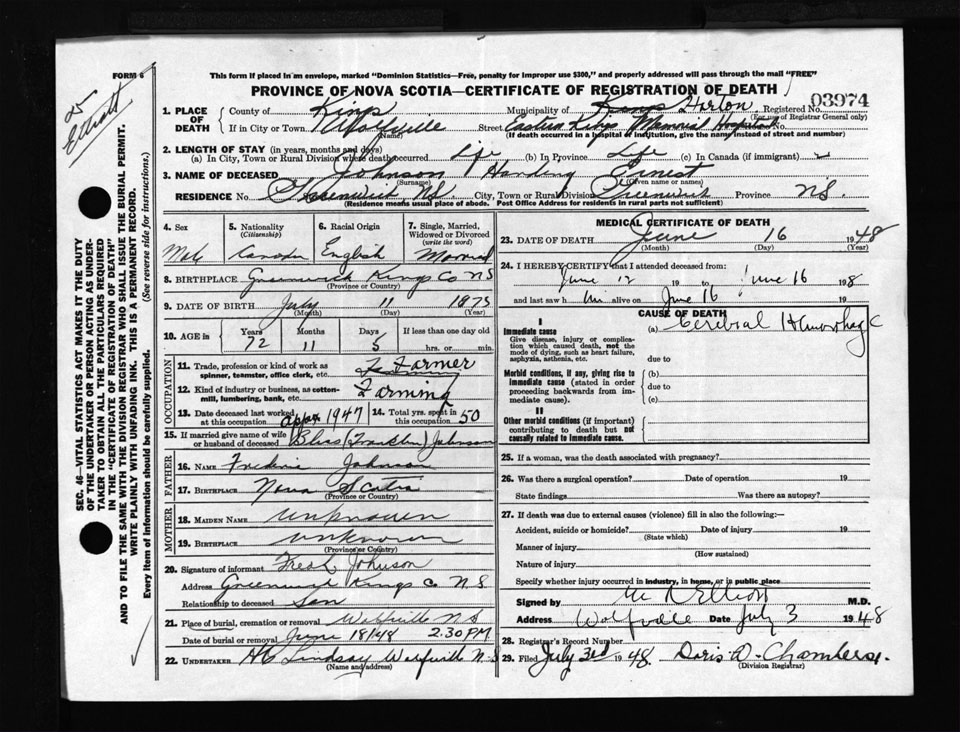 FORM 6
This form if placed in an envelope, marked "Dominion Statistics—Free, penalty for improper use $300," and properly addressed will pass through the mail "FREE"
PROVINCE OF NOVA SCOTIA—CERTIFICATE OF REGISTRATION OF DEATH
Elliott
1. PLACE OF DEATH County of Kings Municipality of Kings Horton Registered No. 03974
(For use of Registrar General only)
If in City or Town Wolfville Street Eastern Kings Memorial Hospital No.
(If death occurred in institution, give the name instead of street and number)
2. LENGTH OF STAY (in years, months and days)
(a) In City, Town or Rural Division where death occurred Life (b) In Province Life (c) In Canada (if immigrant)
3. NAME OF DECEASED Johnson Harding Ernest
(Surname) (Given name or names)
RESIDENCE No. Greenwich, NS City, Town or Rural Division Greenwich Province N.S.
(Residence means usual place of abode. Post Office Address for residents in rural parts not sufficient)
4. Sex Male
5. Nationality (Citizenship) Canadian
6. Racial Origin English
7. Single, Married, Widowed or Divorced (write the word) Married
8. BIRTHPLACE Greenwich Kings Co NS
(Province or Country)
9. DATE OF BIRTH July 11 1875
(Month) (Day) (Year)
10. AGE in Years 72 Months 11 Days 5 If less than one day old hrs. or min.
OCCUPATION
11. Trade, profession or kind of work as spinner, teamster, office clerk, etc. Farmer
12. Kind of industry or business, as cotton-mill, lumbering, bank, etc. Farming
13. Date deceased last worked at this occupation appox 1947 14. Total yrs. spent in this occupation 50
15. If married give name of wife or husband of deceased (Franklin) Johnson
FATHER
16. NAME Johnson
17. BIRTHPLACE Nova Scotia
(Province or Country)
MOTHER
18. MAIDEN NAME unknown
19. BIRTHPLACE unknown
(Province or Country)
20. Signature of informant Fred Johnson
Address Greenwich Kings Co N.S
Relationship to deceased Son
21. Place of burial, cremation or removal Wolfville NS
Date of burial or removal June 18/48 2.30 PM
22. UNDERTAKER Lindsay Wolfville N.S
(Name and address)
MEDICAL CERTIFICATE OF DEATH
23. DATE OF DEATH June 16 1948
(Month) (Day) (Year)
24. I HEREBY CERTIFY that I attended deceased from:
June 12 19 to June 16 1948
and last saw him alive on June 16 19
CAUSE OF DEATH
I
Immediate cause (a) Cerebral Hemorrhage
Give disease, injury or complication which caused death, not the mode of dying, such as heart failure, asphyxia, asthenia, etc. due to
Morbid conditions, if any, giving rise to immediate cause (stated in order proceeding backwards from immediate cause). (b)
due to
(c)
II
Other morbid conditions (if important) contributing to death but not causally related to immediate cause.
25. If a woman, was the death associated with pregnancy?
26. Was there a surgical operation? Date of operation 19
State findings Was there an autopsy?
27. If death was due to external causes (violence) fill in also the following:—
Accident, suicide or homicide? Date of injury 19
(State which)
Manner of injury
(How sustained)
Nature of injury
Specify whether injury occurred in industry, in home, or in public place
Signed by Elliott M.D.
Address Wolfville Date July 3 1948
28. Registrar's Record Number
29. Filed July 3rd 1948 Doris D. Chambers.
(Division Registrar)
SEC. 46—VITAL STATISTICS ACT MAKES IT THE DUTY
OF THE UNDERTAKER OR PERSON ACTING AS UNDER-
TAKER TO OBTAIN ALL THE PARTICULARS REQUIRED
IN THE "CERTIFICATE OF REGISTRATION OF DEATH"
AND TO FILE THE SAME WITH THE DIVISION REGISTRAR WHO SHALL ISSUE THE BURIAL PERMIT.
WRITE PLAINLY WITH UNFADING INK. THIS IS A PERMANENT RECORD.
Every item of information should be carefully supplied. (See reverse side for instructions.)